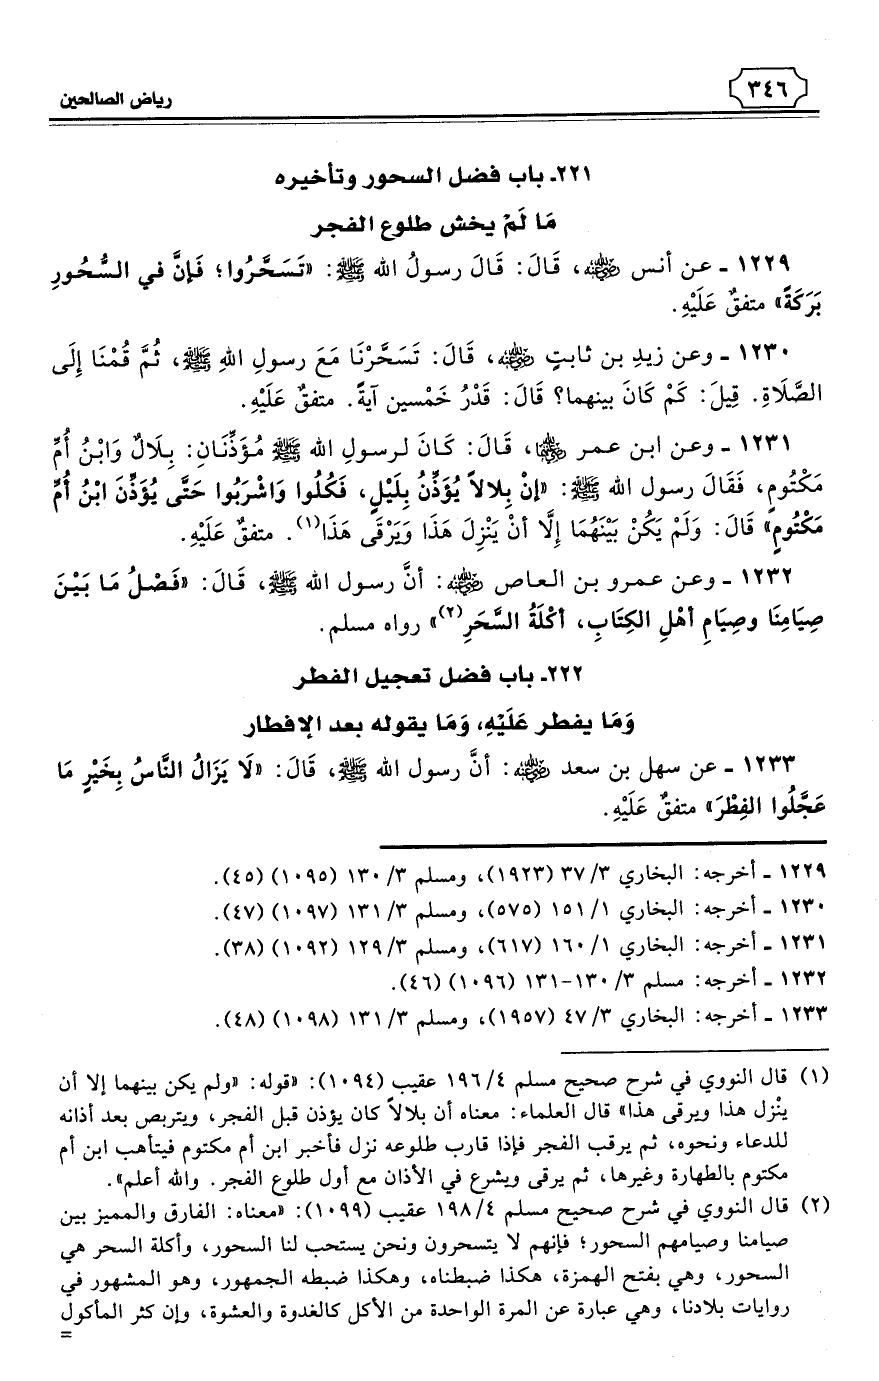 ٣٤٦
رياض الصالحين
٢٢١ـ باب فضل السحور وتأخيره
مَا لَمْ يخش طلوع الفجر
١٢٢٩ ـ عن أنس رضي الله عنه، قَالَ: قَالَ رسولُ الله ﷺ: «تَسَحَّرُوا؛ فَإنَّ في السُّحُورِ
بَرَكَةً» متفقٌ عَلَيْهِ.
١٢٣٠ ـ وعن زيدِ بن ثابتٍ رضي الله عنه، قَالَ: تَسَحَّرْنَا مَعَ رسولِ اللهِ ﷺ، ثُمَّ قُمْنَا إلَى
الصَّلَاةِ. قِيلَ: كَمْ كَانَ بينهما؟ قَالَ: قَدْرُ خَمْسين آيةً. متفقٌ عَلَيْهِ.
١٢٣١ ـ وعن ابن عمر رضي الله عنهما، قَالَ: كَانَ لرسولِ الله ﷺ مُؤَذِّنَانِ: بِلَالٌ وَابْنُ أُمِّ
مَكْتُومٍ، فَقَالَ رسول الله ﷺ: «إنْ بِلالاً يُؤَذِّنُ بِلَيْلٍ، فَكُلُوا وَاشْرَبُوا حَتَّى يُؤَذِّنَ ابْنُ أُمِّ
مَكْتُومٍ» قَالَ: وَلَمْ يَكُنْ بَيْنَهُمَا إِلَّا أنْ يَنْزِلَ هَذَا وَيَرْقَى هَذَا(١). متفقٌ عَلَيْهِ.
١٢٣٢ ـ وعن عمرو بن العاص رضي الله عنه: أنَّ رسول الله ﷺ، قَالَ: «فَصْلُ مَا بَيْنَ
صِيَامِنَا وصِيَامِ أهْلِ الكِتَابِ، أكْلَةُ السَّحَرِ(٢)» رواه مسلم.
٢٢٢ـ باب فضل تعجيل الفطر
وَمَا يفطر عَلَيْهِ، وَمَا يقوله بعد الإفطار
١٢٣٣ ـ عن سهل بن سعد رضي الله عنه: أنَّ رسول الله ﷺ، قَالَ: «لَا يَزَالُ النَّاسُ بِخَيْرٍ مَا
عَجَّلُوا الفِطْرَ» متفقٌ عَلَيْهِ.
١٢٢٩ ـ أخرجه: البخاري ٣/ ٣٧ (١٩٢٣)، ومسلم ٣/ ١٣٠ (١٠٩٥) (٤٥).
١٢٣٠ ـ أخرجه: البخاري ١/ ١٥١ (٥٧٥)، ومسلم ٣/ ١٣١ (١٠٩٧) (٤٧).
١٢٣١ ـ أخرجه: البخاري ١/ ١٦٠ (٦١٧)، ومسلم ٣/ ١٢٩ (١٠٩٢) (٣٨).
١٢٣٢ ـ أخرجه: مسلم ٣/ ١٣٠-١٣١ (١٠٩٦) (٤٦).
١٢٣٣ ـ أخرجه: البخاري ٣/ ٤٧ (١٩٥٧)، ومسلم ٣/ ١٣١ (١٠٩٨) (٤٨).
(١) قال النووي في شرح صحيح مسلم ٤/ ١٩٦ عقيب (١٠٩٤): «قوله: «ولم يكن بينهما إلا أن
ينْزل هذا ويرقى هذا» قال العلماء: معناه أن بلالاً كان يؤذن قبل الفجر، ويتربص بعد أذانه
للدعاء ونحوه، ثم يرقب الفجر فإذا قارب طلوعه نزل فأخبر ابن أم مكتوم فيتأهب ابن أم
مكتوم بالطهارة وغيرها، ثم يرقى ويشرع في الأذان مع أول طلوع الفجر. والله أعلم».
(٢) قال النووي في شرح صحيح مسلم ٤/ ١٩٨ عقيب (١٠٩٩): «معناه: الفارق والمميز بين
صيامنا وصيامهم السحور؛ فإنهم لا يتسحرون ونحن يستحب لنا السحور، وأكلة السحر هي
السحور، وهي بفتح الهمزة، هكذا ضبطناه، وهكذا ضبطه الجمهور، وهو المشهور في
روايات بلادنا، وهي عبارة عن المرة الواحدة من الأكل كالغدوة والعشوة، وإن كثر المأكول
=